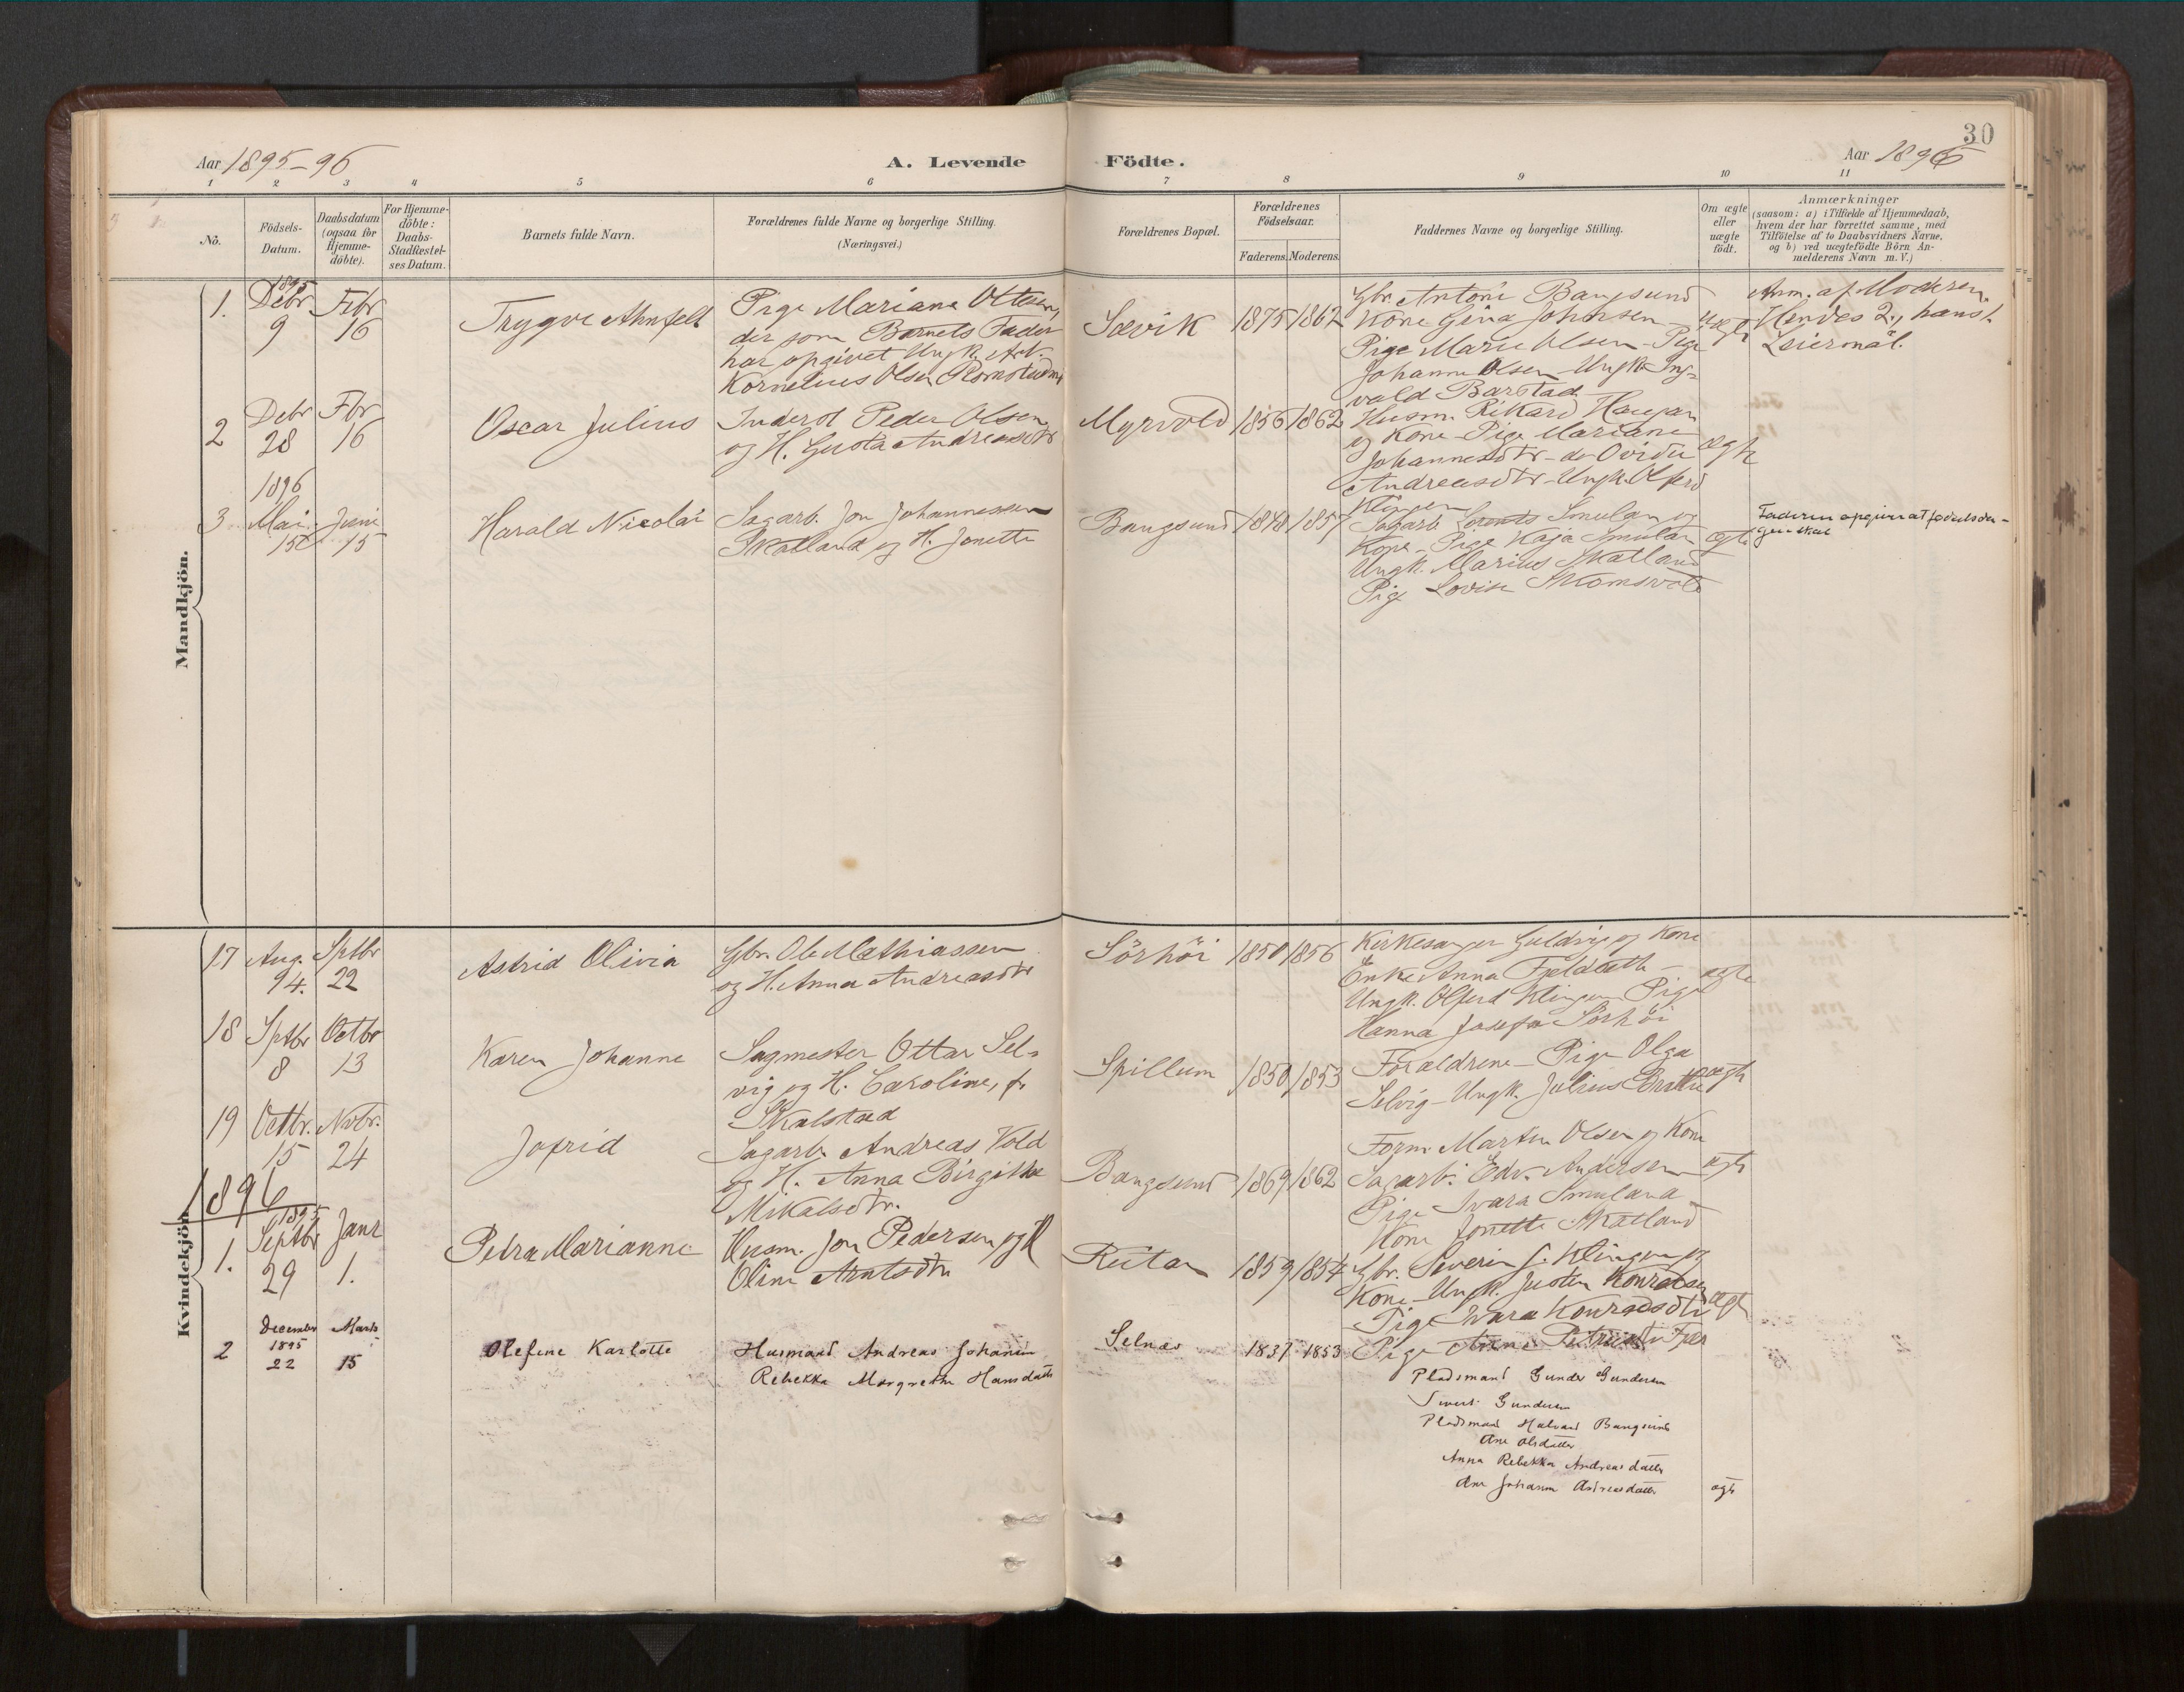 30
Aar 1895-96
A. Levende Födte.
Aar 1896
1 2 3 4 5 6 7 8 9 10 11
No.
Födsels-Datum.
Daabsdatum (ogsaa for Hjemme-döbte).
For Hjemme-döbte: Daabs-Stadfæstel-ses Datum.
Barnets fulde Navn.
Forældrenes fulde Navne og borgerlige Stilling.
(Næringsvei.)
Forældrenes Bopæl.
Forældrenes Födselsaar.
Faderens. Moderens.
Faddernes Navne og borgerlige Stilling.
Om ægte eller uægte födt.
Anmærkninger
(saasom: a) i Tilfælde af Hjemmedaab,
hvem der har forrettet samme, med
Tilföielse af to Daabsvidners Navne,
og b) ved uægtefödte Börn An-
melderens Navn m. V.)
Mandkjön.
1. 1895 Debr 9 Febr 16
Trygve Ahnfelt
Pige Mariane Ottesen,
der som Barnets Fader
har opgivet Ungk. Arb.
Kornelius Olsen
Sævik 1875 1862
Gbr. Antoni Bangsund
Kone Gina Johnsen
Pige Marie Olsen - Pige
Johanna Olsen - Ungk. Ing-
vald Barstad
uægte
Anm. af Moderen.
Hendes 2., hans 1.
Leiermål.
2 Debr 28 Fbr 16
Oscar Julius
Inderst Peder Olsen
og H. Gusta Andreasdtr
Myrvold 1856 1862
Husm. Rikard Haugan
og Kone - Pige Mariane
Johannesdtr - do Ovidia
Andreasdtr - Ungk. Olferd
Klingen
ægte
1896
3 Mai 15 Juni 15
Harald Nicolai
Sagarb. Jon Johannessen
Skatland og H. Jonette
Bangsund 1848 1857
Sagarb. Lorents Smulan og
Kone - Pige Kaja Smulan
Ungk. Marius Skatland
Pige Lovise
ægte
Faderen opgiver at fødselsda-
gen skal
Kvindekjön.
17 Aug. 14. Sptbr 22
Astrid Olivia
Gbr. Ole Mathiassen
og H. Anna Andreasdtr
Sörhöi 1850 1856
Kirkesanger Guldvig og Kone
Enke Anna
Ungk. Olferd Klingen Pige
Hanna Josefa Sörhöi
ægte
18 Sptbr 8 Octbr 13
Karen Johanne
Sagmester Ottar Sel-
vig og H. Caroline, f.
Skalstad
Spillum 1850 1853
Forældrene - Pige Olga
Selvig - Ungk. Julius
ægte
19 Octbr. 15 Novbr. 24
Jofrid
Sagarb. Andreas Vold
og H. Anna Birgitte
Mikalsdtr.
Bangsund 1869 1862
Form. Martin Olsen og Kone
Sagarb. Edv. Andersen
Pige Ivara Smulan
Kone Jonette Skatland
ægte
1896
1. 1895 Septbr 29 Janr 1.
Petra Marianne
Husm. Jon Pedersen og H
Oline Arntsdtr
Reitan 1859 1854
Gbr. Severin J. Klingen og
Kone - Ungk. Justin Konradsen
Pige Ivara Konradsdtr
Pige
ægte
2 December 1895 22 Marts 15
Olefine Karlotte
Husmand Andreas Johansen
Rebekka Margrethe Hansdatter
Selnæs 1837 1853
Pladsmand Gunder Gundersen
Sivert Gundersen
Pladsmand Halvard Bangsund
Ane Olsdatter
Anna Rebekka Andreasdatter
Ane Johanna Andreasdatter
ægte